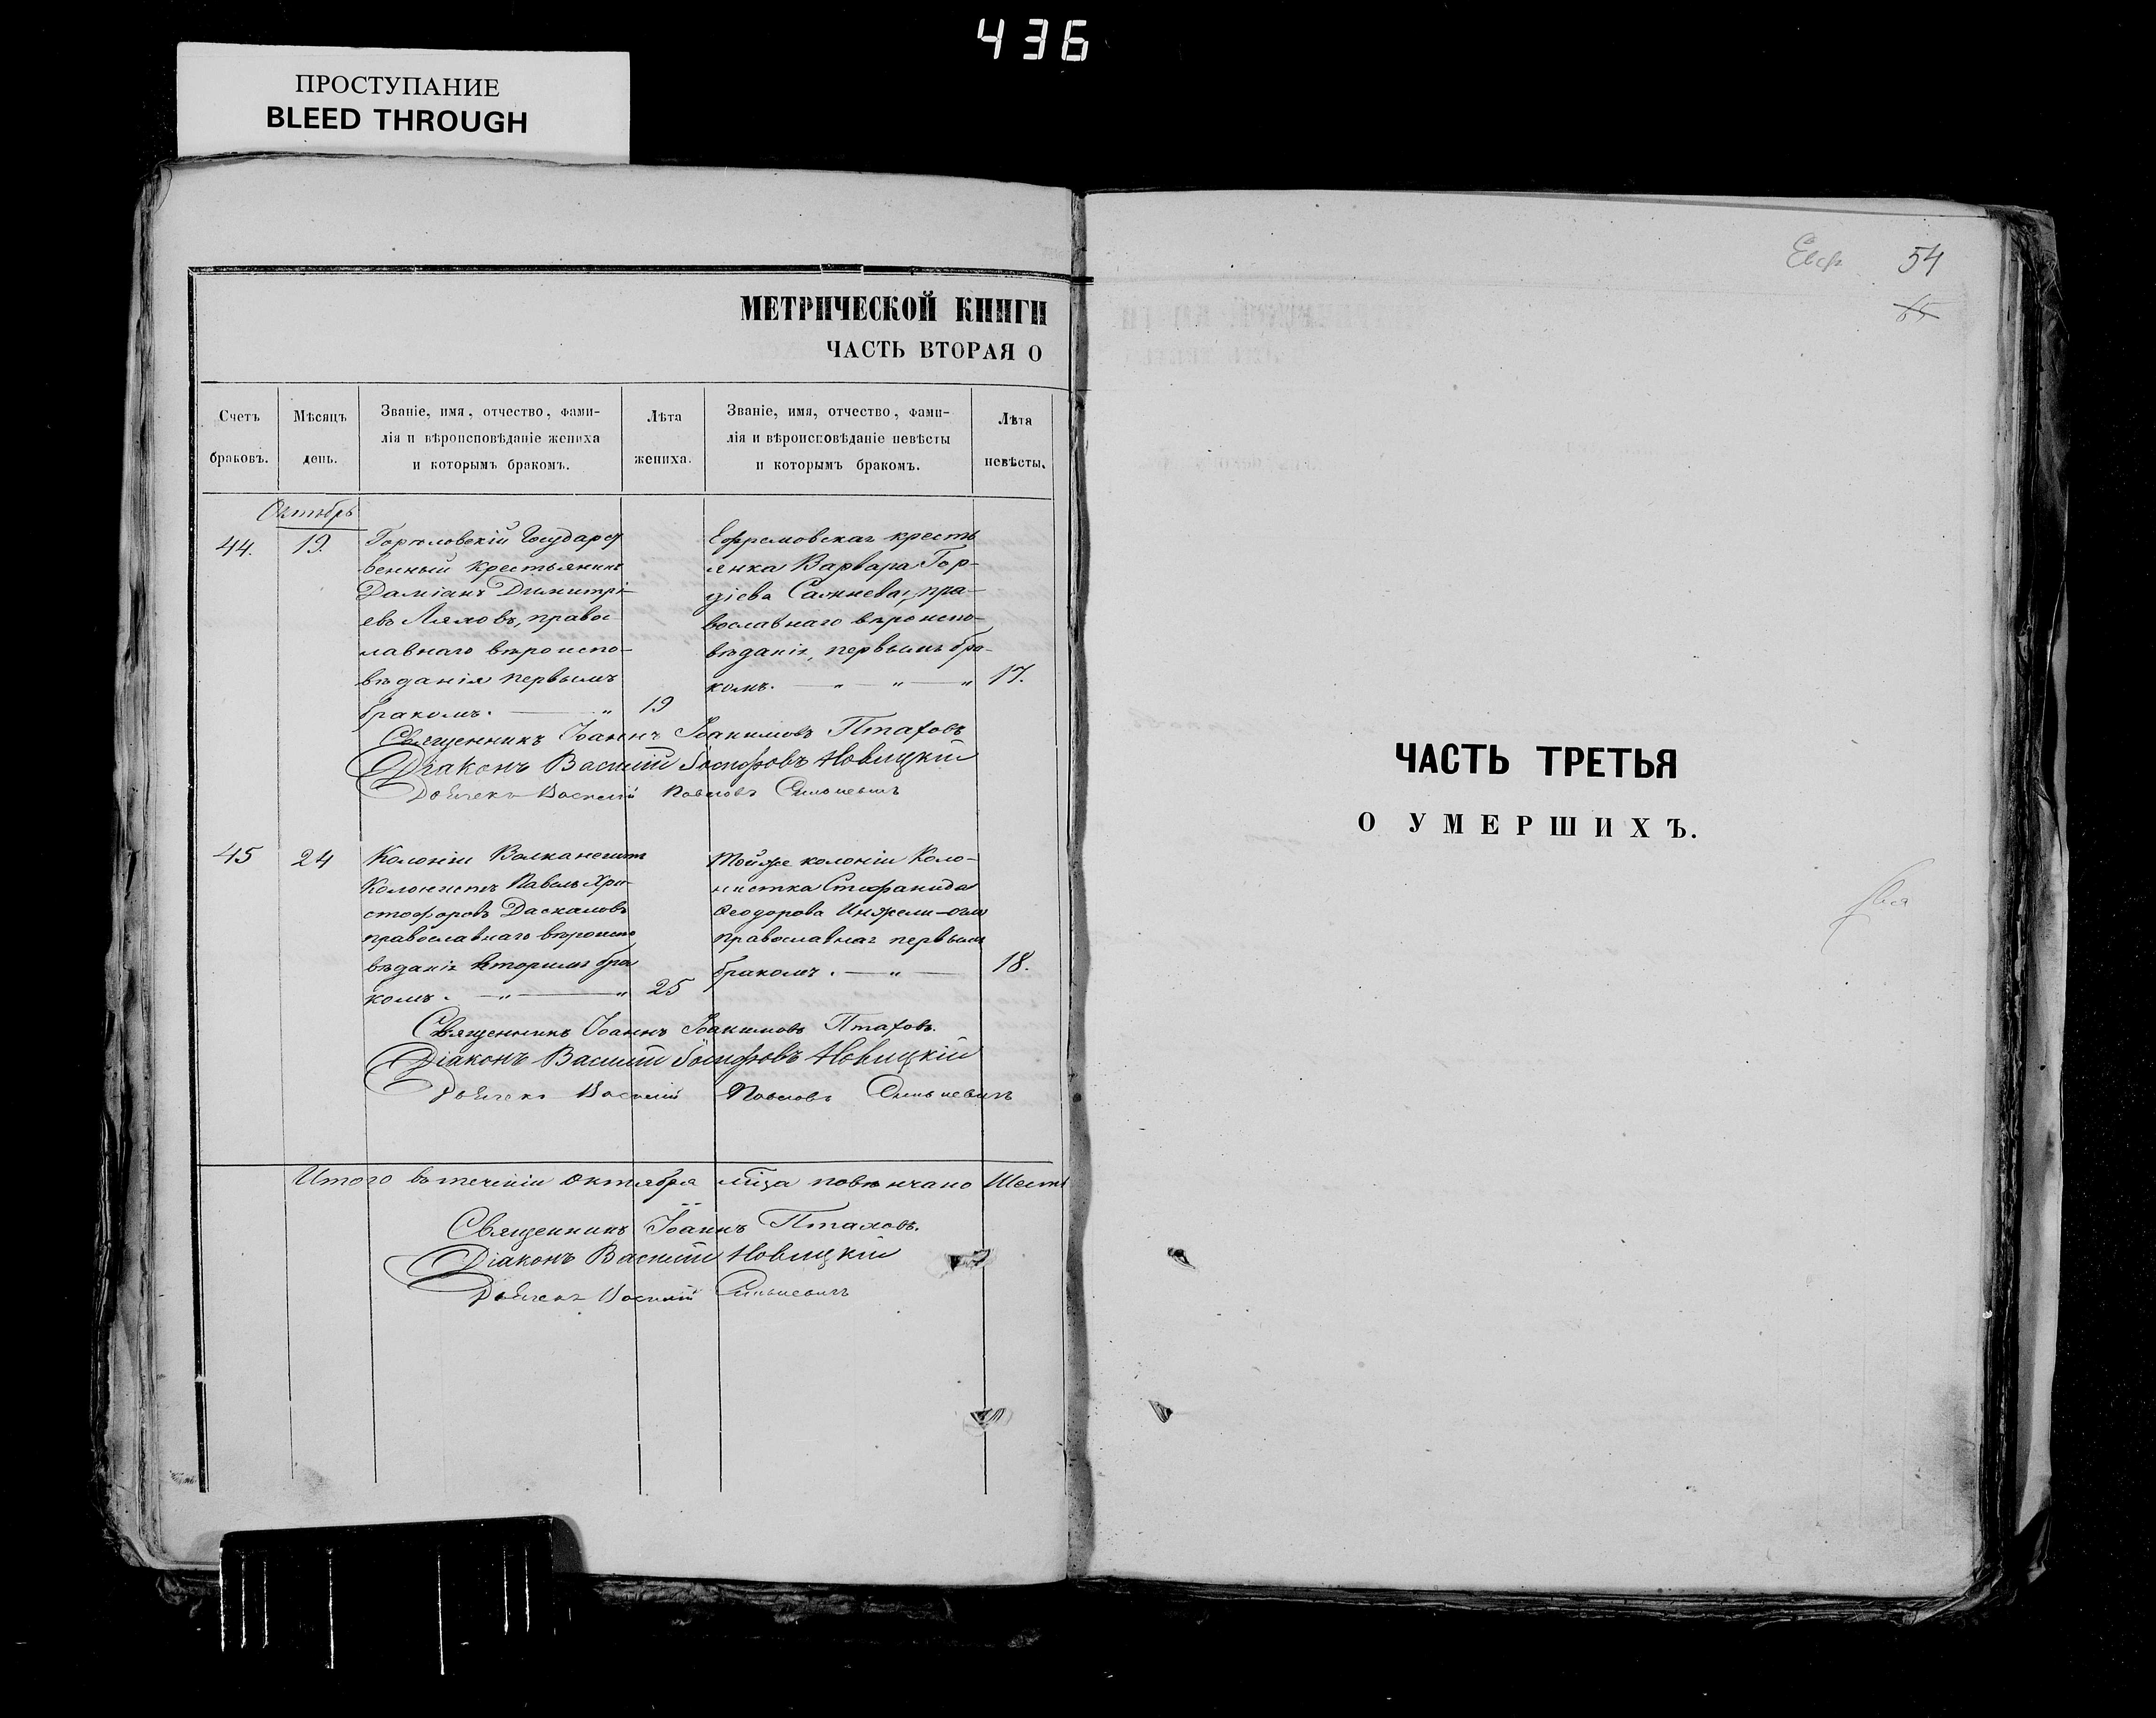 436
ПРОСТУПАНИЕ
BLEED THROUGH
МЕТРИЧЕСКОЙ КНИГИ
ЧАСТЬ ВТОРАЯ О
Счетъ браковъ.
Мѣсяцъ день.
Званіе, имя, отчество, фами-
лія и вѣроисповѣданіе жениха
и которымъ бракомъ.
Лѣта жениха.
Званіе, имя, отчество, фами-
лія и вѣроисповѣданіе невѣсты
и которымъ бракомъ.
Лѣта невѣсты.
Октябрь
44.
19.
Государст
венный Крестьянинъ
Даміанъ Димитрі-
евъ Ляховъ, правос-
лавнаго вѣроиспо-
вѣданія первымъ
бракомъ. — „ 19
Ефремовская кресть
янка Варвара Гор-
діева пра-
вославнаго вѣроиспо-
вѣданія, первымъ бра-
комъ. — „ — „ — „ 17.
Священникъ Іоаннъ Іоакимовъ Птаховъ
Діаконъ Василій Іосифовъ Новицкій
Василій Павловъ
45
24
Колоніи
Колонистъ Павелъ Хри-
стофоровъ Даскаловъ
православнаго вѣроиспо
вѣданія вторымъ бра
комъ. — „ — „ 25
Тойже колоніи Коло-
нистка Стефанида
Ѳеодорова
православная первымъ
бракомъ. — „ — 18.
Священникъ Іоаннъ Іоакимовъ Птаховъ.
Діаконъ Василій Іосифовъ Новицкій
Василій Павловъ
Итого въ теченіи Октября мѣца повѣнчано Шесть
Священникъ Іоаннъ Птаховъ.
Діаконъ Василій Новицкій
Василій
54
ЧАСТЬ ТРЕТЬЯ
О УМЕРШИХЪ.